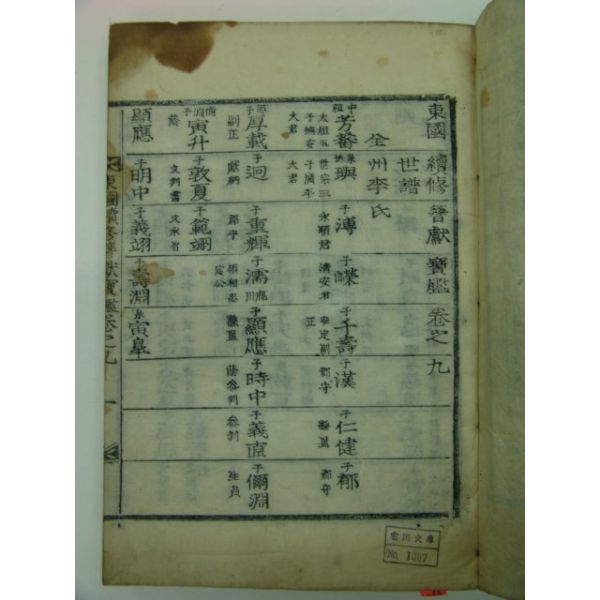 東國續修耆獻寶鑑卷之九
世譜
全州李氏
中祖 芳蕃 太祖五子撫安大君 系 璵 世宗三子廣平大君 子 溥 永順君 子 嶸 清安君 子 千壽 定副正 子 漢 郡守 子 仁健 縣監 子 郁 郡守
子 厚載 副正 子 迥 獻納 子 重輝 郡守 子 濡 鹿川 領相 子 顯應 縣監 子 時中 蔭參判 子 義直 參判 子 儞淵 生員
子 寅升 蔭 子 敦夏 文判書 子 範翊 文承旨
顯應 子 明中 子 義翊 子 壽淵 系 寅皋
東國續修耆獻寶鑑卷之九 一
宙川文庫
No. 1307